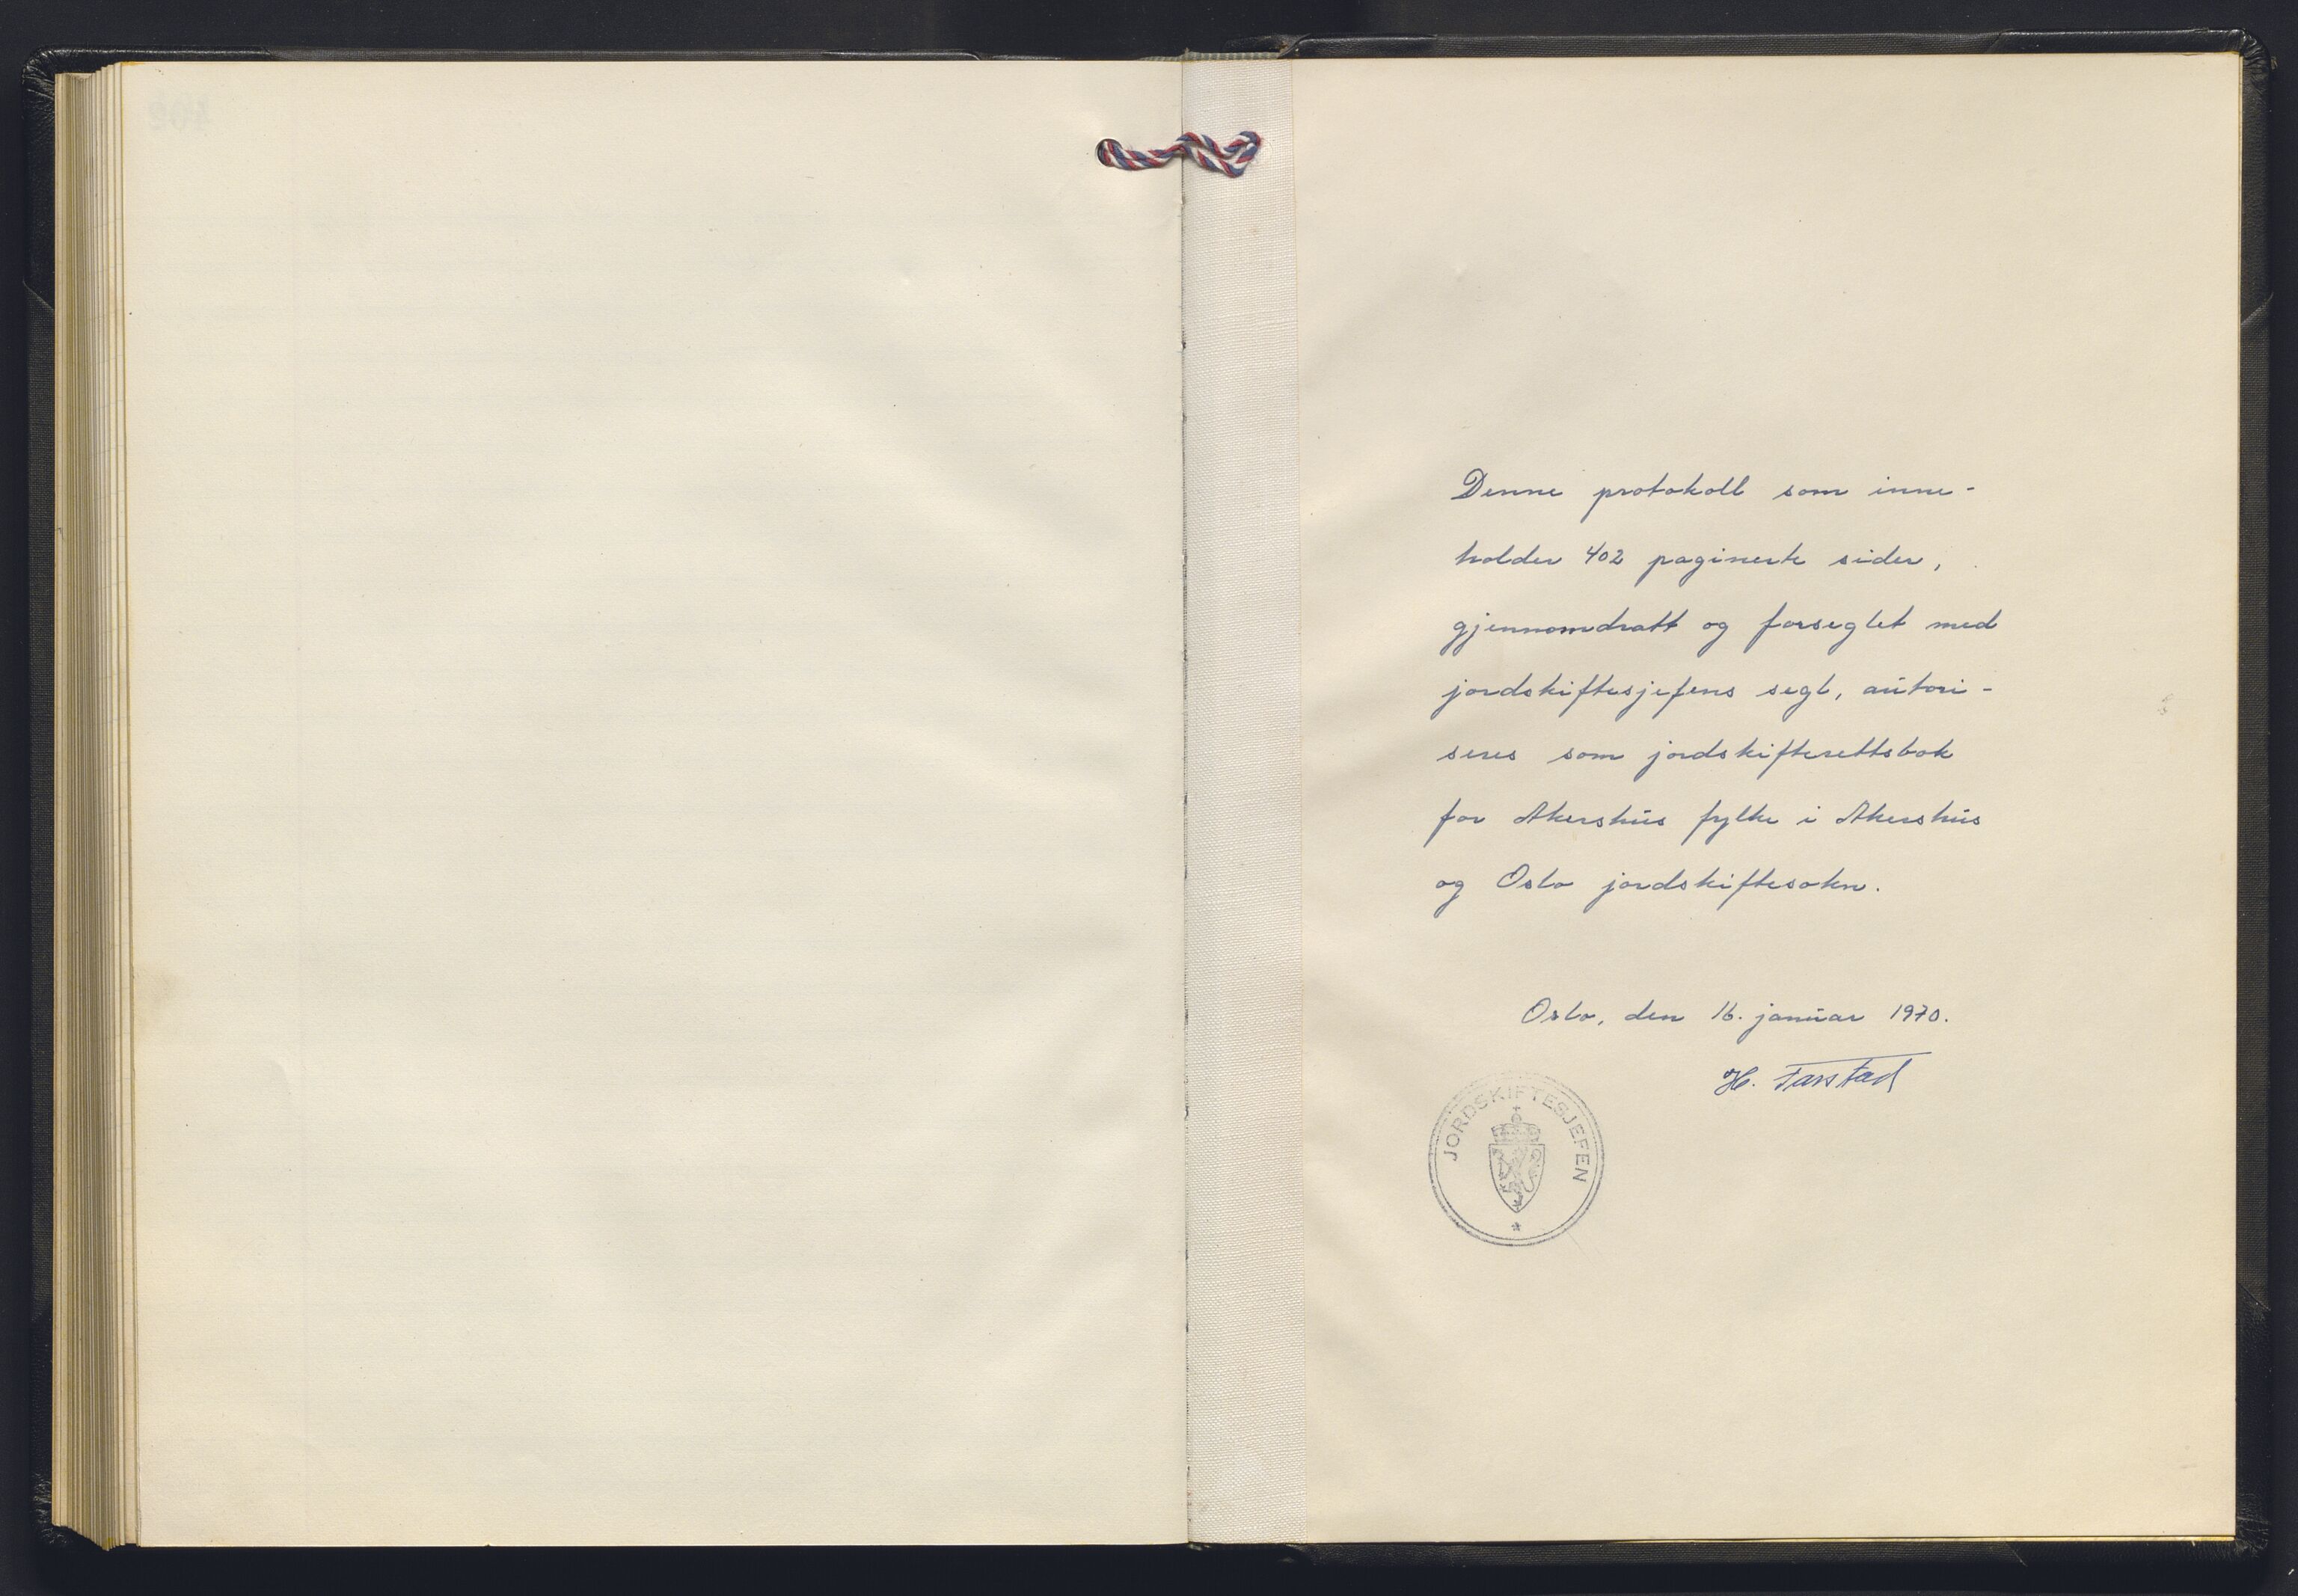 Denne protokoll som inne-
holder 402 paginerte sider,
gjennomdratt og forseglet med
jordskiftesjefens segl, autori-
seres som jordskifterettsbok
for Akershus fylke i Akershus
og Oslo jordskiftesokn.
Oslo, den 16. januar 1970.
H. Farstad
JORDSKIFTESJEFEN